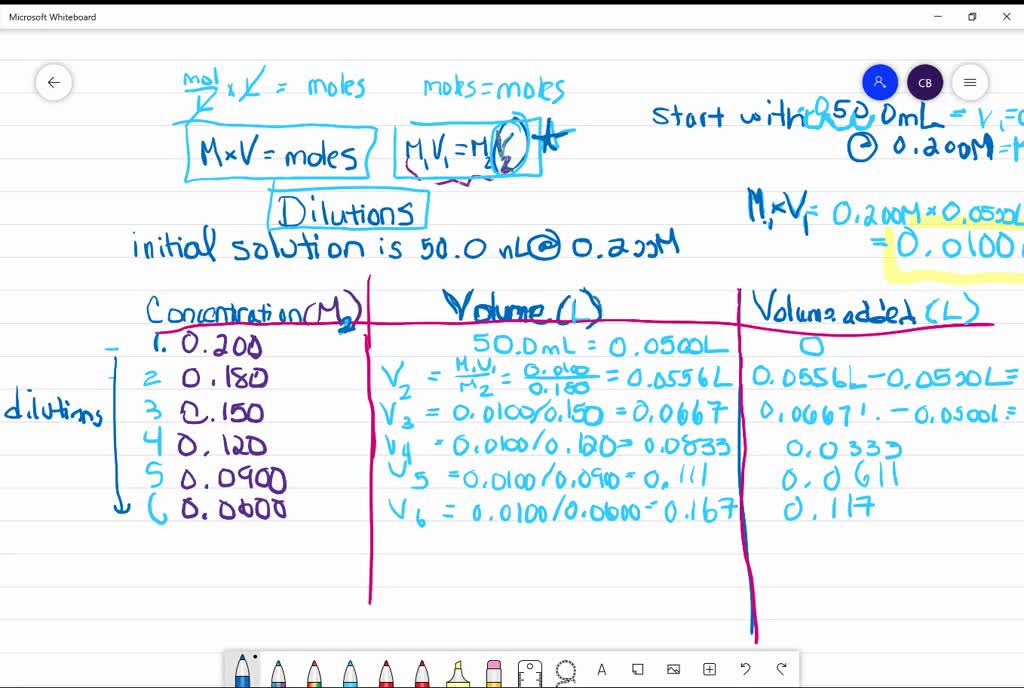 Microsoft Whiteboard
CB
mol/L × L = moles
moles = moles
start with 50.0mL = V₁ =
@ 0.200M =
M×V = moles
M₁V₁ = M₂V₂
Dilutions
M₁×V₁ = 0.200M × 0.0500L
= 0.0100
initial solution is 50.0 mL @ 0.200M
Concentration (M₂) Volume (L) Volume added (L)
1. 0.200 50.0mL = 0.0500L 0
2 0.180 V₂ = M₁V₁/M₂ = 0.0100/0.180 = 0.0556L 0.0556L - 0.0500L =
dilutions
3 0.150 V₃ = 0.0100/0.150 = 0.0667 0.0667L - 0.0500L =
4 0.120 V₄ = 0.0100/0.120 = 0.0833 0.0333
5 0.0900 V₅ = 0.0100/0.090 = 0.111 0.0611
6 0.0600 V₆ = 0.0100/0.0600 = 0.167 0.117
A